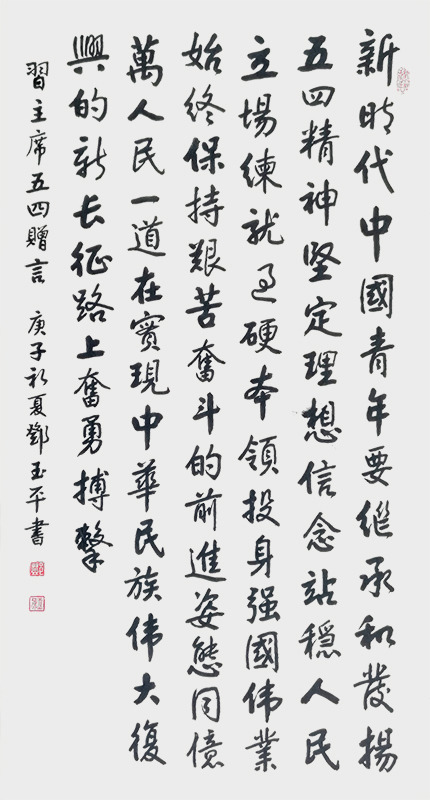 新時代中國青年要继承和發揚
五四精神堅定理想信念站穩人民
立場練就过硬本領投身强國伟業
始終保持艱苦奮斗的前進姿態同億
萬人民一道在實現中華民族伟大復
興的新长征路上奮勇搏擊
習主席五四贈言 庚子初夏鄧玉平書